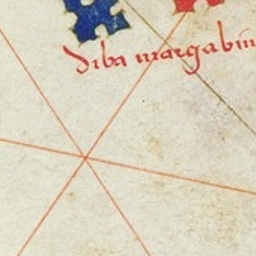 diba margabin